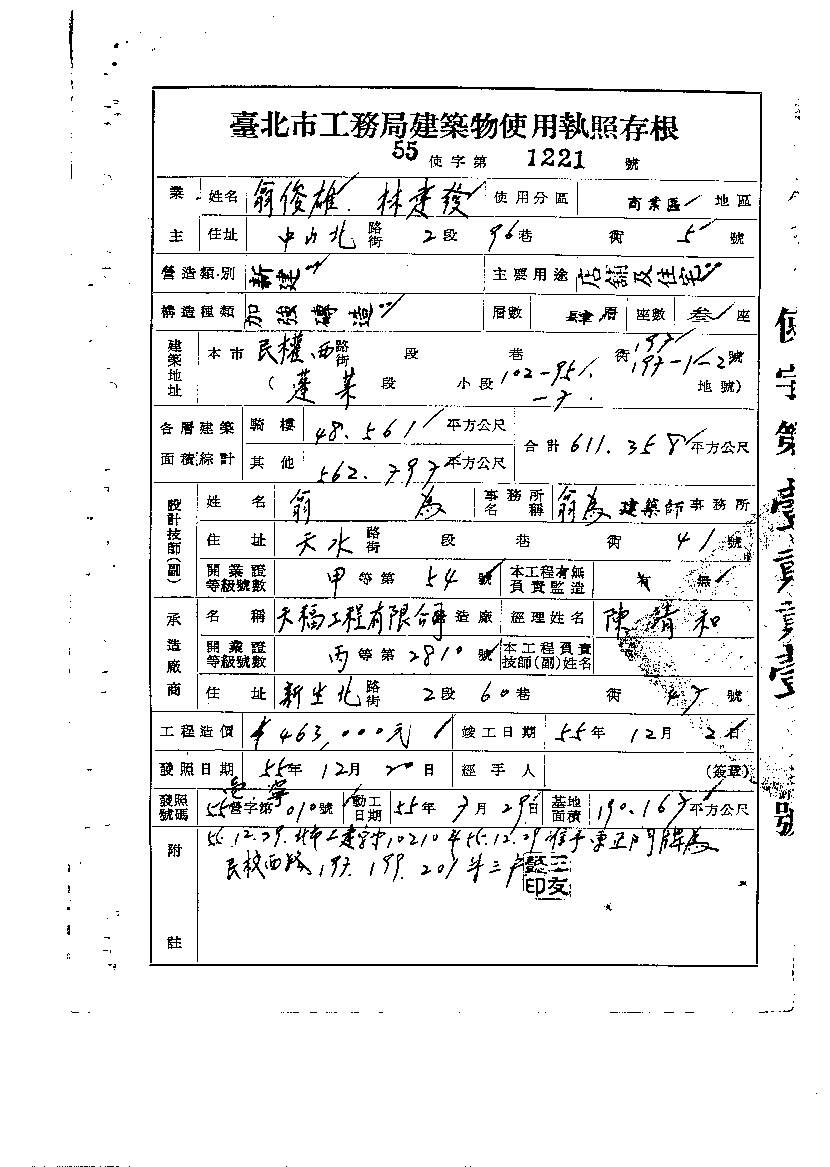 臺北市工務局建築物使用執照存根
55 使字第 1221 號
業主 姓名 翁俊雄．林建發 使用分區 商業區 地區
住址 中山北 路街 2 段 96 巷 衖 5 號
營造類別 新建 主要用途 店舖及住宅
構造種類 加強磚造 層數 肆層 座數 叁座
建築地址 本市 民權西 路街 段 巷 衖 197 197-1-2 號
(蓬萊 段 小段 102-95 地號)
各層建築面積綜計 騎樓 48.561 平方公尺 合計 611.358 平方公尺
其他 562.797 平方公尺
設計技師(副) 姓名 翁為 事務所名稱 翁為建築師事務所
住址 天水 路街 段 巷 衖 41 號
開業證等級號數 甲等第 54 號 本工程有無負責監造 有 無
承造廠商 名稱 天福工程有限公司 造廠 經理姓名 陳清和
開業證等級號數 丙等第 2810 號 本工程負責技師(副)姓名
住址 新生北 路街 2 段 60 巷 衖 47 號
工程造價 463,000元 竣工日期 55年 12月 2日
發照日期 55年 12月 20日 經手人 (簽章)
發照號碼 55 營字第 010 號 動工日期 55年 7月 29日 基地面積 190.167 平方公尺
附註 55.12.29.北市工建字 10210 55.12.29 准予更正門牌為
民權西路 197.199.201 號三戶
使字第壹貳貳壹號